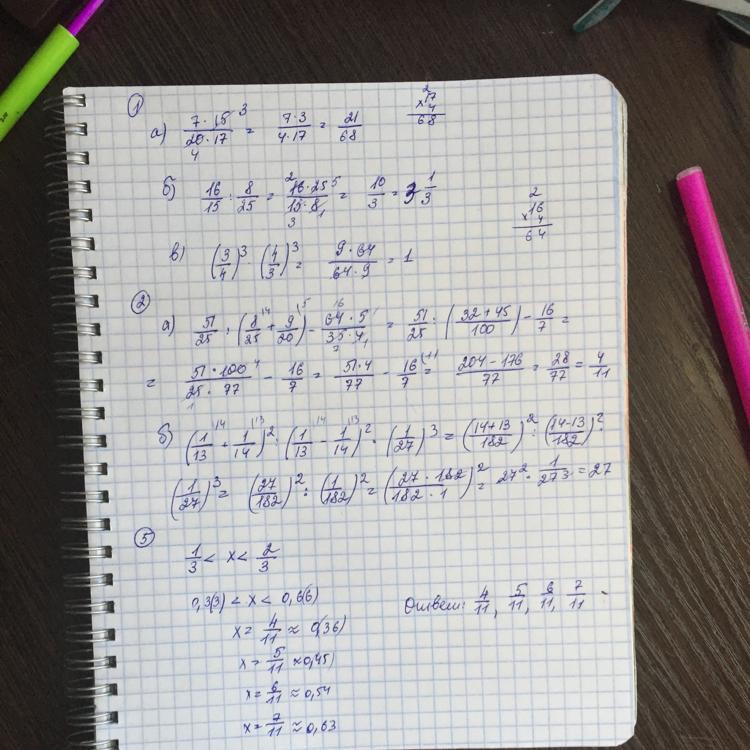 1
а) 7·15³/20·17 4 = 7·3/4·17 = 21/68
2
17
×4
68
б) 16/15 : 8/25 = ²16·25⁵/15·8 3 1 = 10/3 = 3 1/3
2
16
×4
64
в) (3/4)³ · (4/3)³ = 9·64/64·9 = 1
2
а) 51/25 : (8/25 \4 + 9/20 \5) − 64·5/35·4 16 1 7 1 = 51/25 : (32+45/100) − 16/7 =
= 51·100 4/25·77 1 − 16/7 = 51·4/77 − 16/7 \11 = 204−176/77 = 28/77 = 4/11
б) (1/13 \14 + 1/14 \13)² : (1/13 \14 − 1/14 \13)² · (1/27)³ = (14+13/182)² : (14−13/182)² ·
(1/27)³ = (27/182)² : (1/182)² = (27·182/182·1)² = 27² · 1/273 = 27
5
1/3 < x < 2/3
0,3(3) < x < 0,6(6)
x = 4/11 ≈ 0(36)
Ответ: 4/11, 5/11, 6/11, 7/11.
x = 5/11 ≈ 0,45)
x = 6/11 ≈ 0,54
x = 7/11 ≈ 0,63